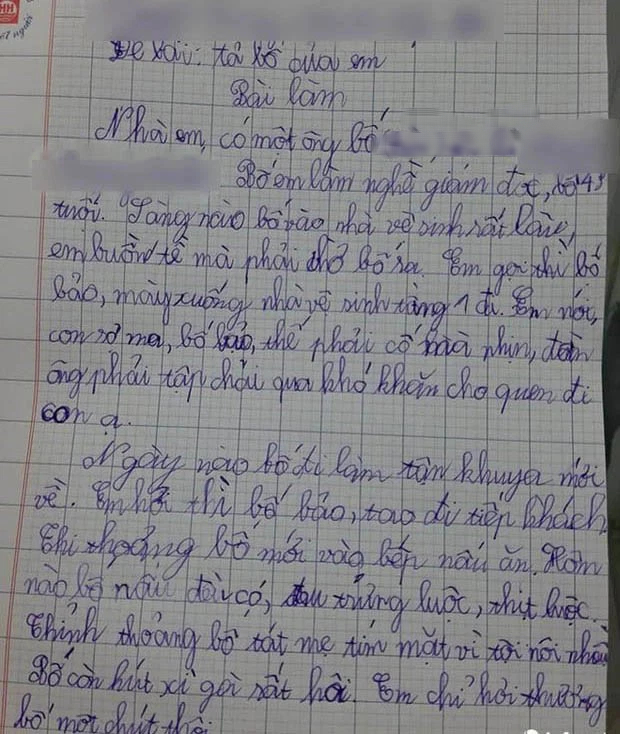 HH
Đề bài: tả bố của em
Bài làm
Nhà em, có một ông bố
Bố em làm nghề giám đốc, bố 43
tuổi. Sáng nào bố vào nhà vệ sinh rất lâu,
em buồn tè mà phải chờ bố ra. Em gọi thì bố
bảo, mày xuống nhà vệ sinh tầng 1 đi. Em nói,
con sợ ma, bố bảo, thế phải cố mà nhịn, đàn
ông phải tập chải qua khó khăn cho quen đi
con ạ.
Ngày nào bố đi làm tận khuya mới
về. Em hỏi thì bố bảo, tao đi tiếp khách
Thi thoảng bố mới vào bếp nấu ăn. Hôm
nào bố nấu đều có, trứng luộc, thịt luộc.
Thỉnh thoảng bố tát mẹ tím mặt vì tội nói nhiều
Bố còn hút xì gà rất hôi. Em chỉ hơi thương
bố một chút thôi